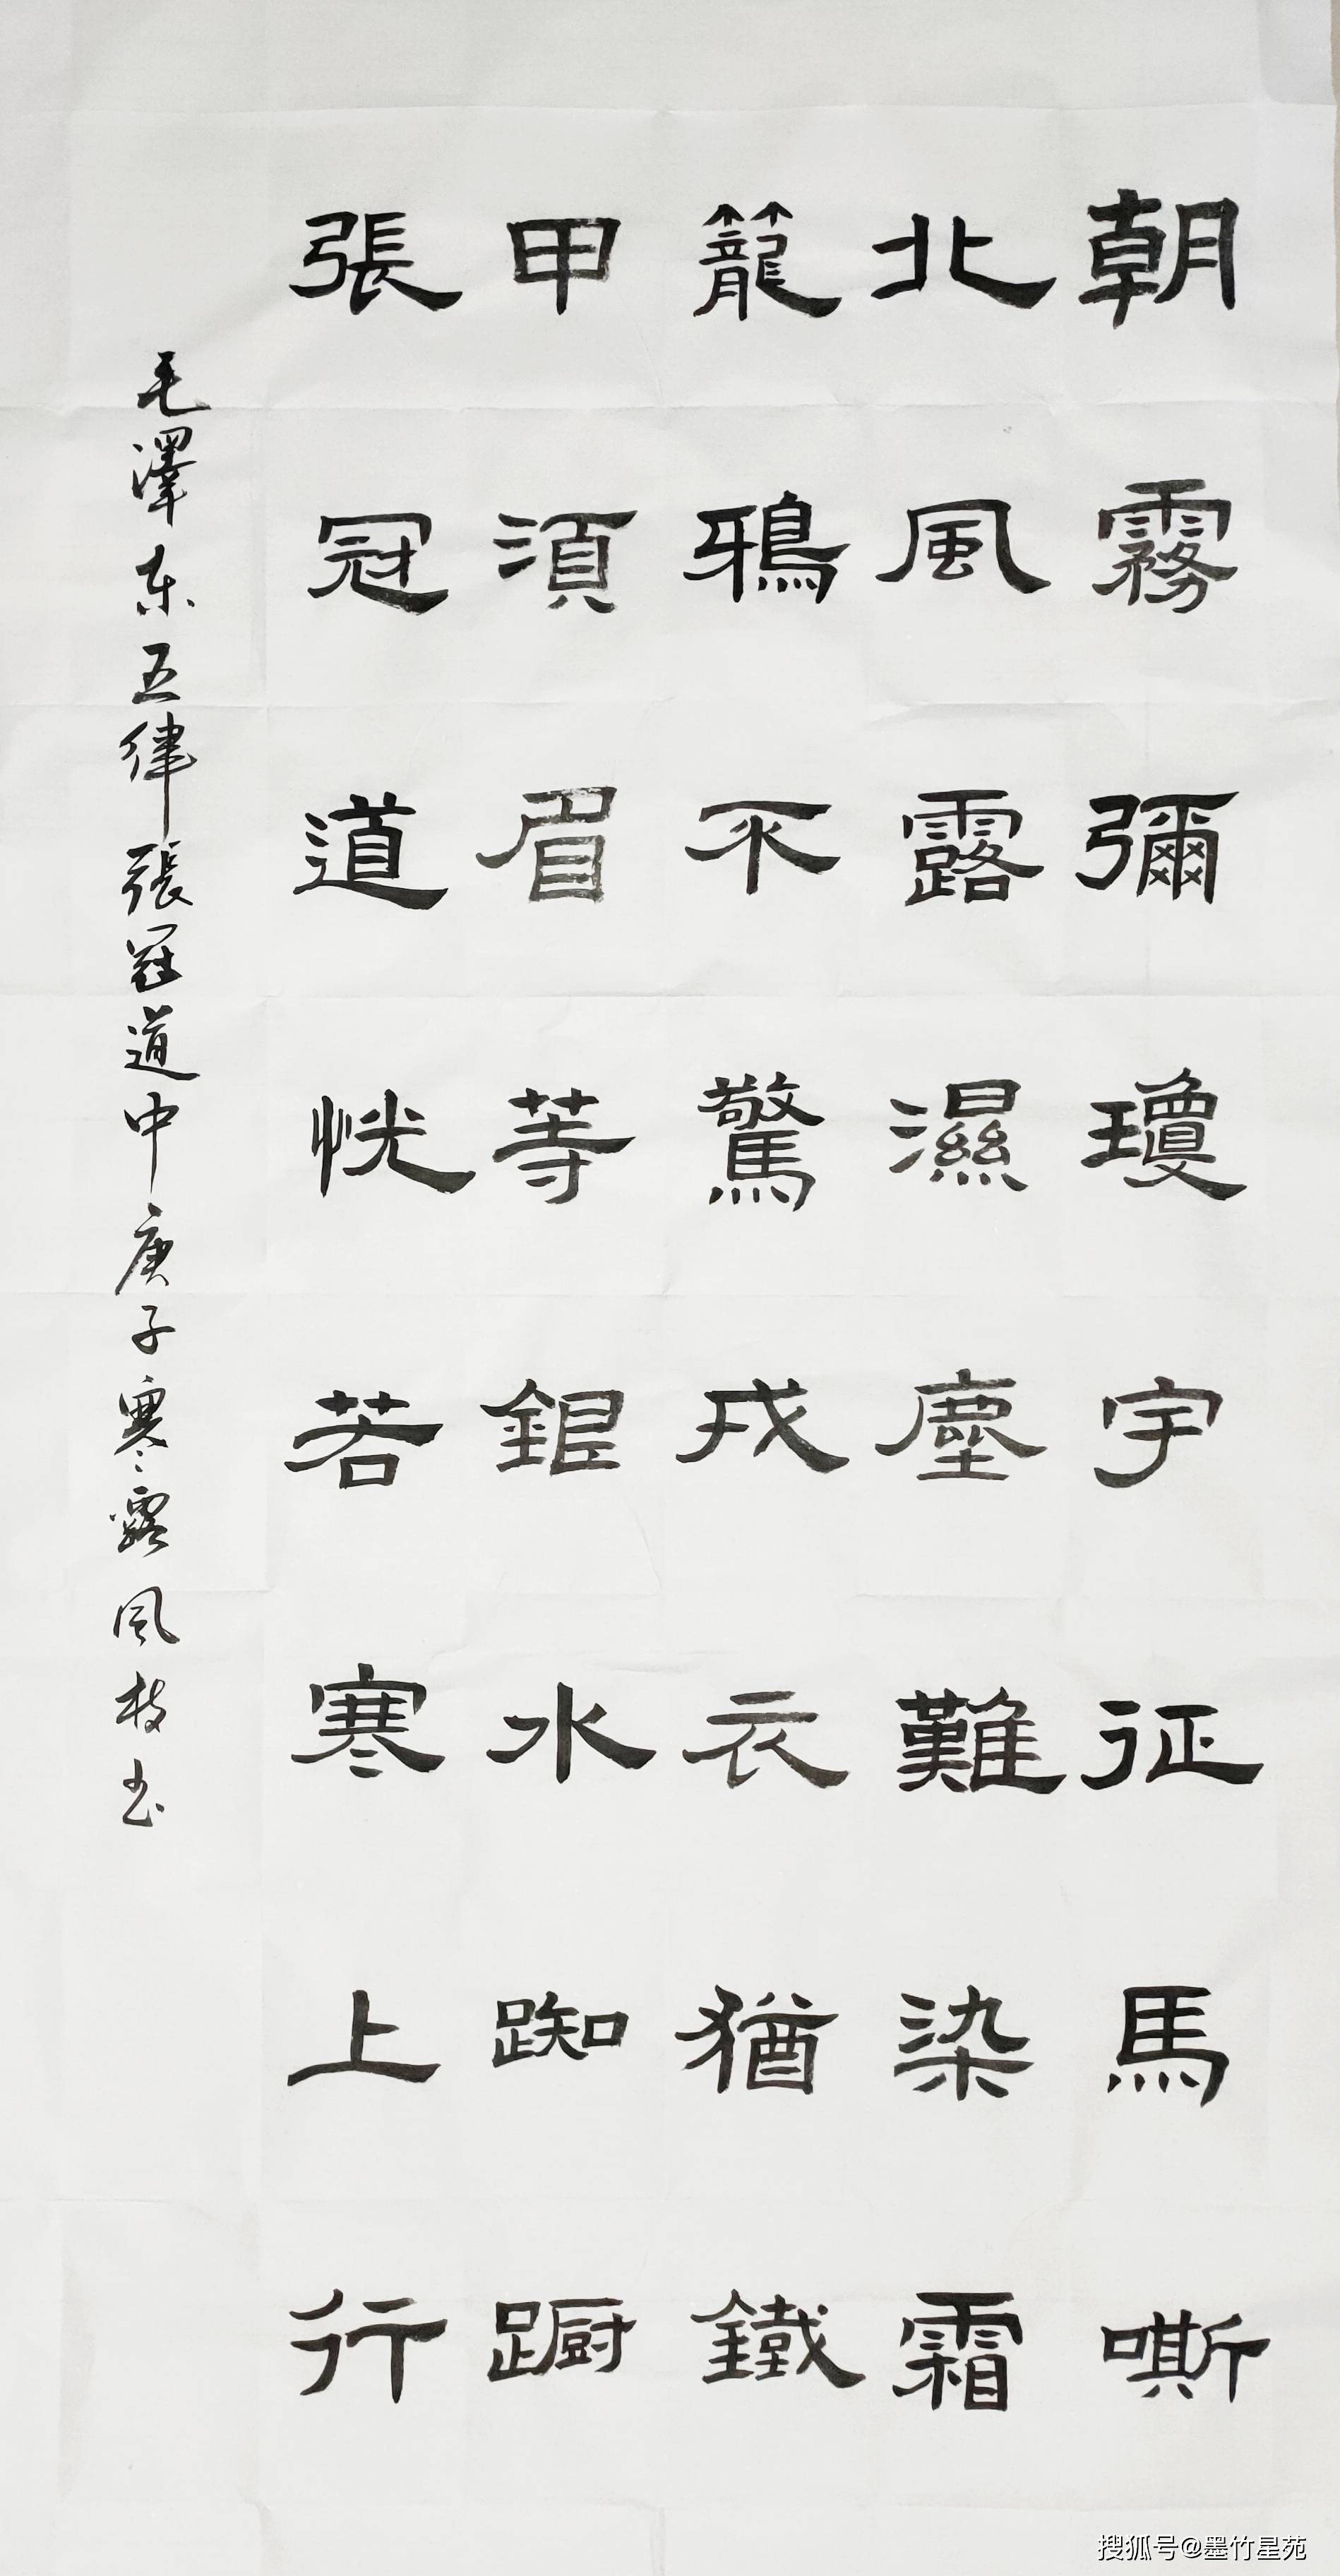 朝霧彌瓊宇征馬嘶
北風露濕塵難染霜
籠鴉不驚戎衣猶鐵
甲須眉等銀水踟蹰
張冠道恍若寒上行
毛澤东五律張冠道中庚子寒露风枝书
搜狐号@墨竹星苑